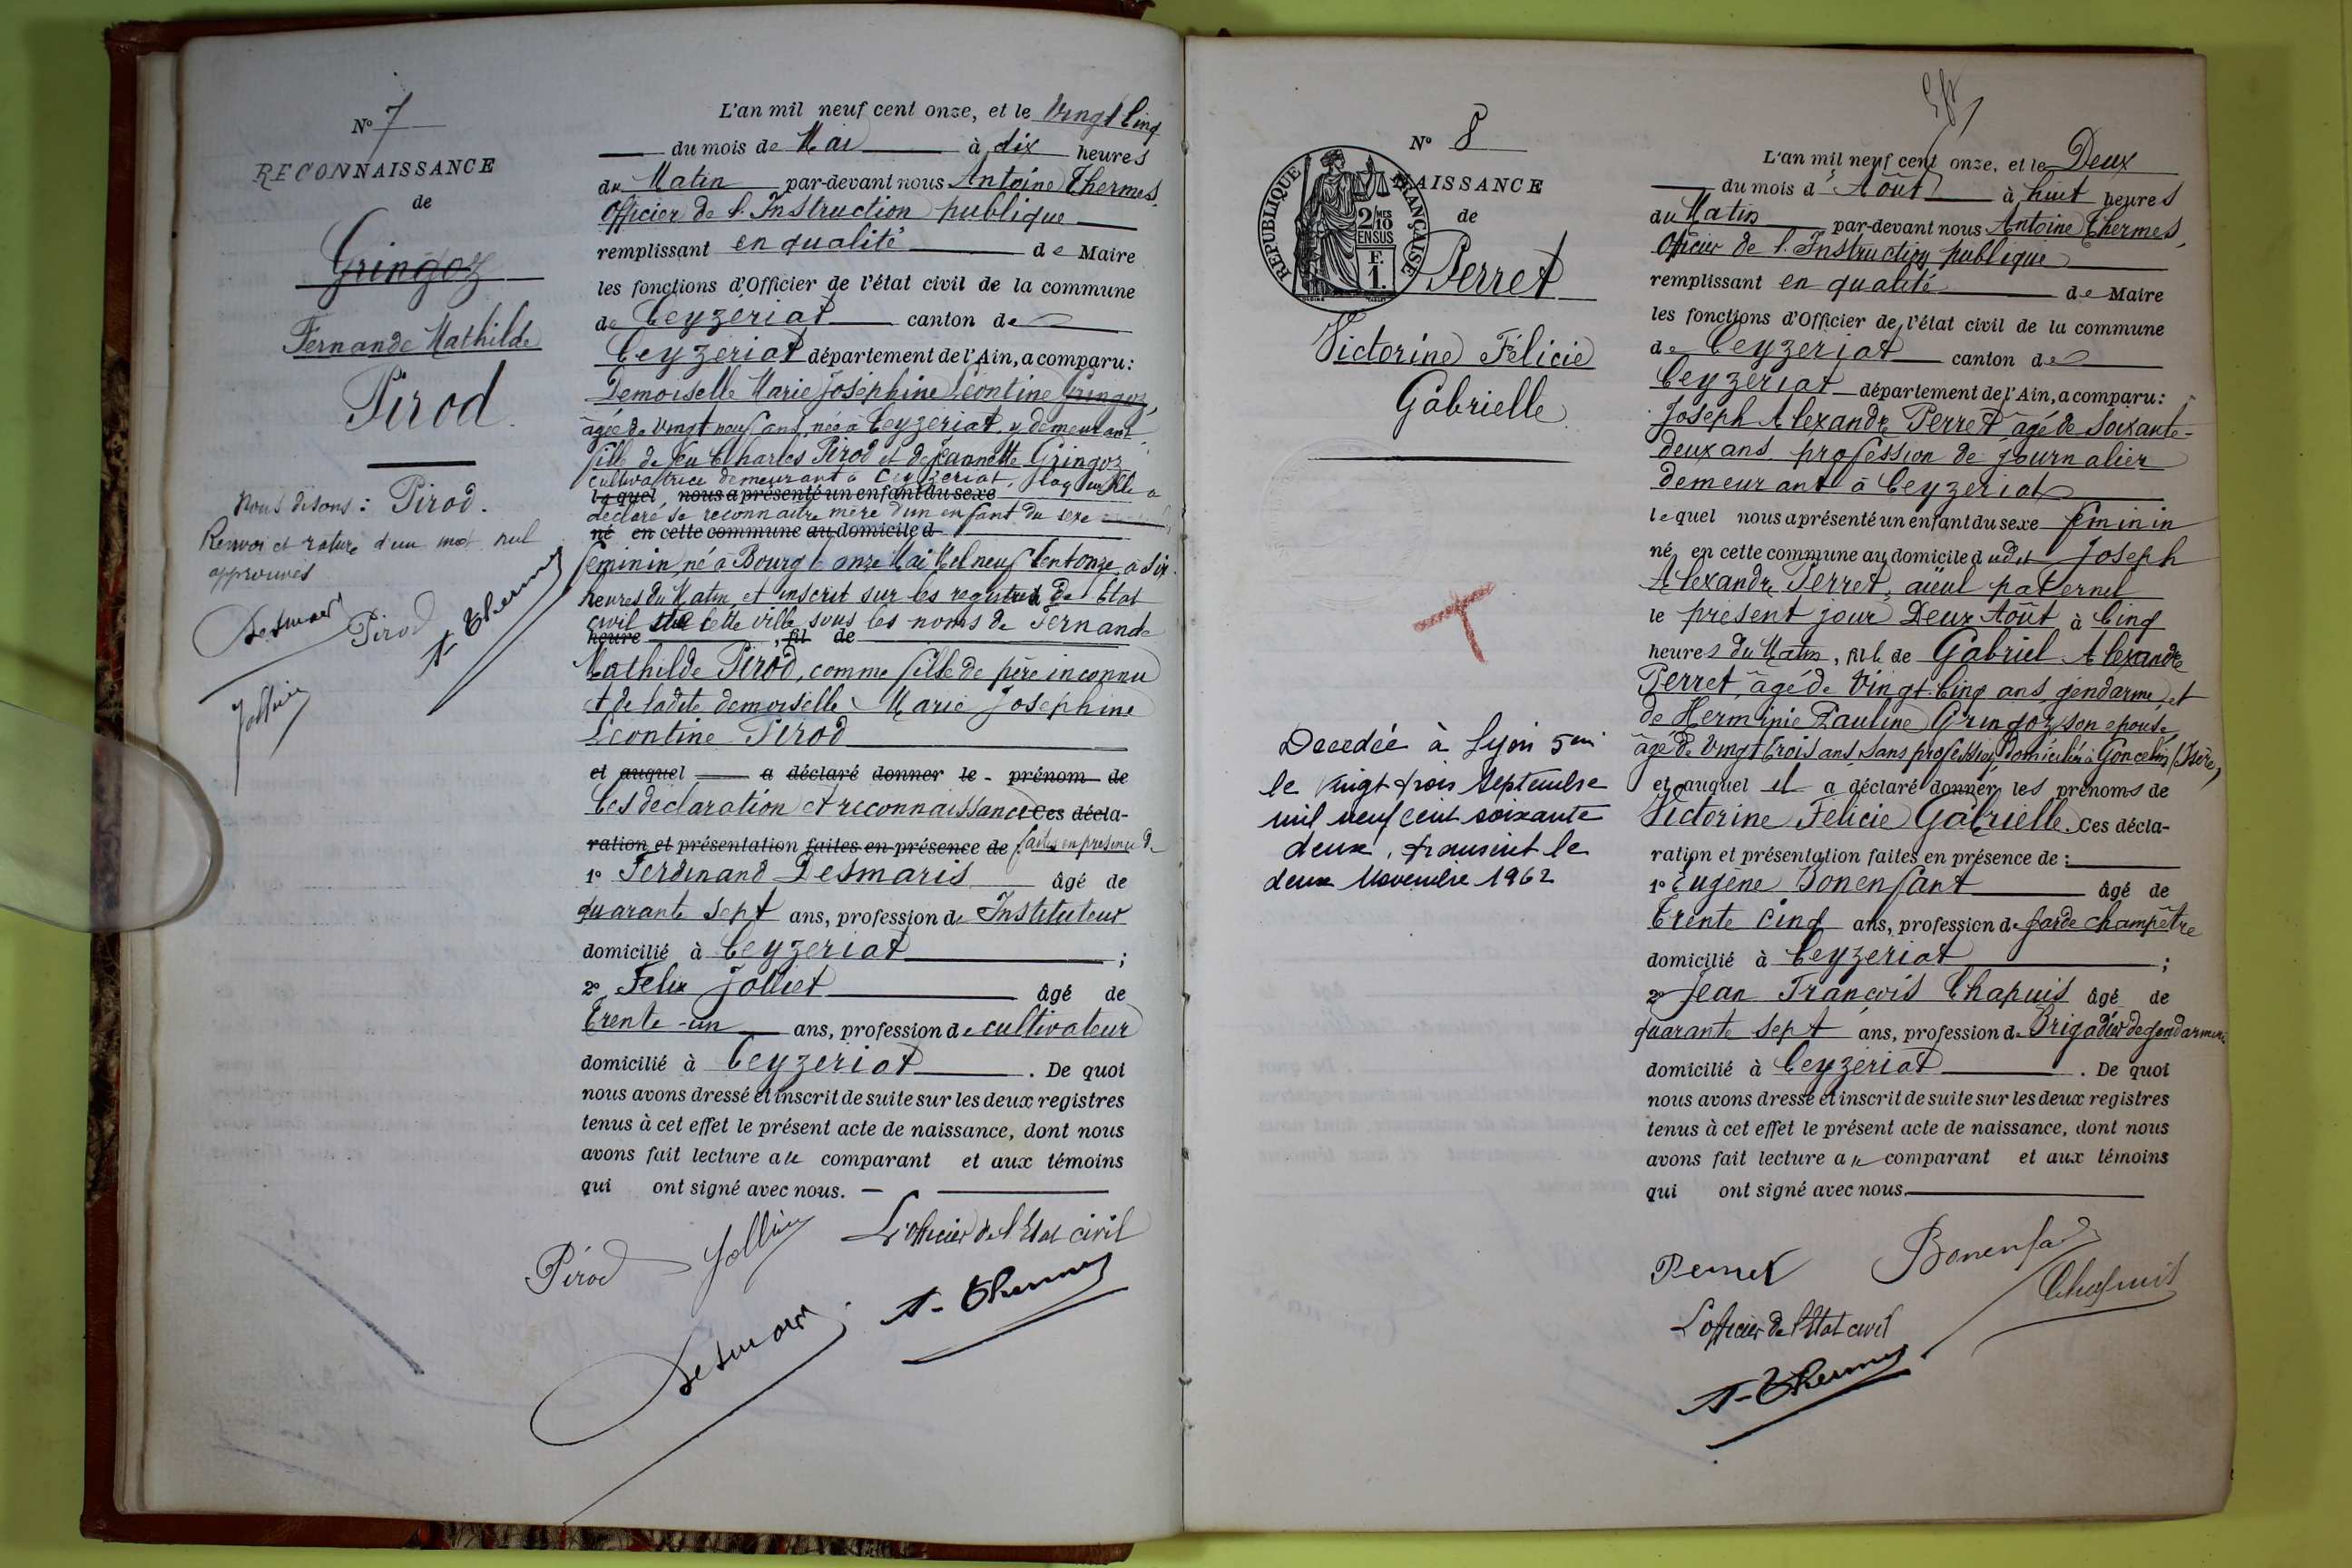 N° 7
RECONNAISSANCE
de
Gringoz
Fernande Mathilde
Pirod
Nous disons : Pirod.
Renvoi et rature d'un mot nul
approuvés
Desmaris
Pirod
A. Thermes
Jolliet
L'an mil neuf cent onze, et le Vingt Cinq
du mois de Mai à dix heures
du Matin par-devant nous Antoine Thermes,
Officier de l'Instruction publique
remplissant en qualité de Maire
les fonctions d'Officier de l'état civil de la commune
de Ceyzériat canton de
Ceyzériat département de l'Ain, a comparu :
Demoiselle Marie Joséphine Léontine Gringoz,
âgée de vingt neuf ans, née à Ceyzériat, y demeurant,
fille de feu Charles Pirod et de Jeannette Gringoz
cultivatrice demeurant à Ceyzériat, laquelle a
lequel nous a présenté un enfant du sexe
déclaré se reconnaitre mère d'un enfant du sexe
né en cette commune au domicile d
féminin, né à Bourg le onze Mai Mil neuf Cent onze, à six
heures du Matin et inscrit sur les registres de l'Etat
civil de cette ville sous les noms de Fernande
heure , fil de
Mathilde Pirod, comme fille de père inconnu
et de ladite demoiselle Marie Joséphine
Léontine Pirod
et auquel a déclaré donner le prénom de
Ces déclaration et reconnaissance Ces décla-
ration et présentation faites en présence de faites en présence de
1° Ferdinand Desmaris âgé de
quarante sept ans, profession de Instituteur
domicilié à Ceyzériat ;
2° Félix Jolliet âgé de
Trente-un ans, profession de cultivateur
domicilié à Ceyzériat . De quoi
nous avons dressé et inscrit de suite sur les deux registres
tenus à cet effet le présent acte de naissance, dont nous
avons fait lecture au comparant et aux témoins
qui ont signé avec nous.
L'officier de l'Etat civil
Pirod
Jolliet
Desmaris
A. Thermes
N° 8
NAISSANCE
de
RÉPUBLIQUE FRANÇAISE
2/10 MES
EN SUS
F.
1.
Perret
Victorine Félicie
Gabrielle
Decedée à Lyon 5em
le vingt trois Septembre
mil neuf cent soixante
deux, transcrit le
deux Novembre 1962
L'an mil neuf cent onze, et le Deux
du mois d'Août à huit heures
du Matin par-devant nous Antoine Thermes,
Officier de l'Instruction publique
remplissant en qualité de Maire
les fonctions d'Officier de l'état civil de la commune
de Ceyzériat canton de
Ceyzériat département de l'Ain, a comparu :
Joseph Alexandre Perret âgé de Soixante-
deux ans profession de journalier
demeurant à Ceyzériat
lequel nous a présenté un enfant du sexe féminin
né en cette commune au domicile dudit Joseph
Alexandre Perret, aïeul paternel
le présent jour Deux Août à Cinq
heures du Matin, fille de Gabriel Alexandre
Perret, âgé de Vingt-Cinq ans, gendarme, et
de Herminie Pauline Gringoz, son épouse,
âgé de Vingt trois ans, sans profession, domiciliés à Goncelin (Isère)
et auquel il a déclaré donner les prénoms de
Victorine Félicie Gabrielle. Ces décla-
ration et présentation faites en présence de :
1° Eugène Bonenfant âgé de
Trente cinq ans, profession de garde champêtre
domicilié à Ceyzériat ;
2° Jean François Chapuis âgé de
quarante sept ans, profession de Brigadier de gendarmerie
domicilié à Ceyzériat . De quoi
nous avons dressé et inscrit de suite sur les deux registres
tenus à cet effet le présent acte de naissance, dont nous
avons fait lecture au comparant et aux témoins
qui ont signé avec nous.
Perret
Bonenfant
Chapuis
L'officier de l'Etat civil
A. Thermes